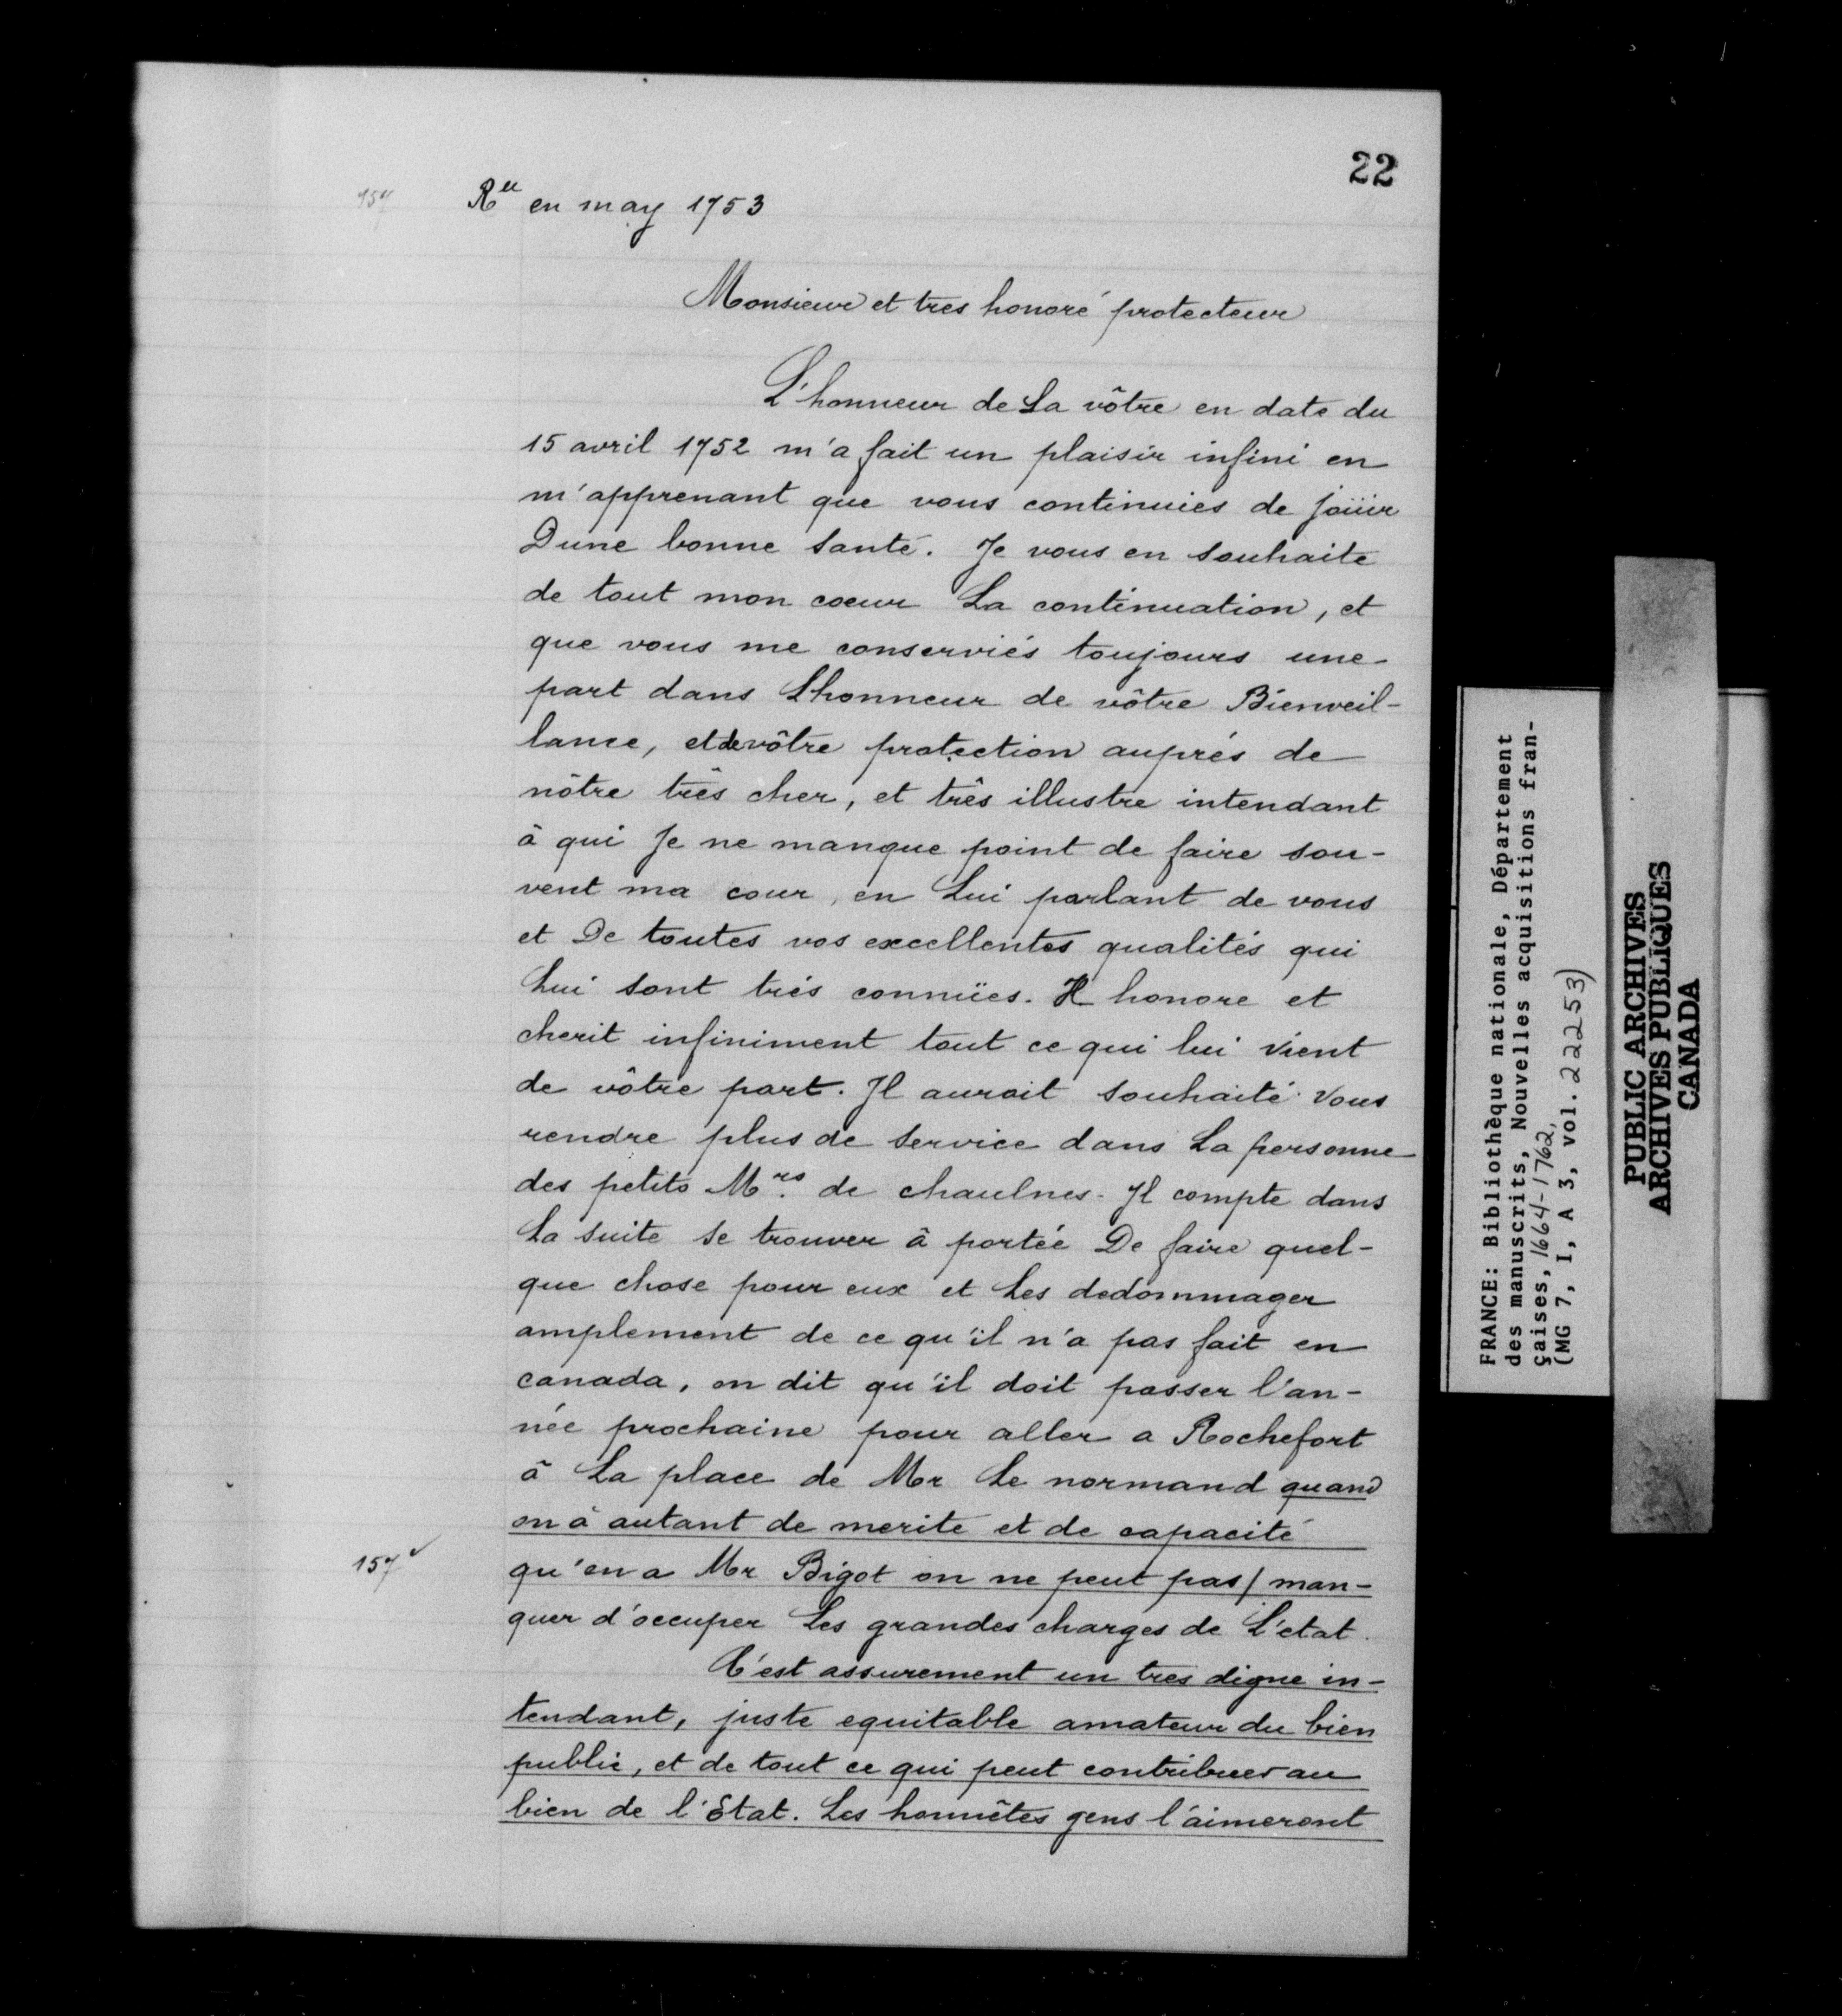 22
157
Reu en may 1753
Monsieur et tres honoré protecteur
L'honneur de La vôtre en date du
15 avril 1752 m'a fait un plaisir infini en
m'apprenant que vous continuiés de Joüir
Dune bonne santé. Je vous en souhaite
de tout mon coeur La continuation, et
que vous me conserviés toujours une
part dans Lhonneur de vôtre Bienveil-
lance, et de vôtre protection auprés de
nôtre três cher, et três illustre intendant
â qui Je ne manque point de faire sou-
vent ma cour, en Lui parlant de vous
et De toutes vos excellentes qualités qui
Lui sont trés connuïes. Il honore et
cherit infiniment tout ce qui lui vient
de vôtre part. Il auroit souhaité vous
rendre plus de service dans La personne
des petits Mrs. de chaulnes. Il compte dans
La suite se trouver â portée De faire quel-
que chose pour eux et Les dedommager
amplement de ce qu'il n'a pas fait en
canada, on dit qu'il doit passer l'an-
née prochaine pour aller a Rochefort
â La place de Mr Le normand quand
on â autant de merite et de capacité
157v
qu'en a Mr Bigot on ne peut pas / man-
quer d'occuper Les grandes charges de L'etat.
C'est assurement un tres digne in-
tendant, juste equitable amateur du bien
public, et de tout ce qui peut contribuer au
bien de l'Etat. Les honnêtes gens l'aimeront
FRANCE: Bibliothèque nationale, Département
des manuscrits, Nouvelles acquisitions fran-
çaises, 1664-1762,
(MG 7, I, A 3, vol. 22253)
PUBLIC ARCHIVES
ARCHIVES PUBLIQUES
CANADA